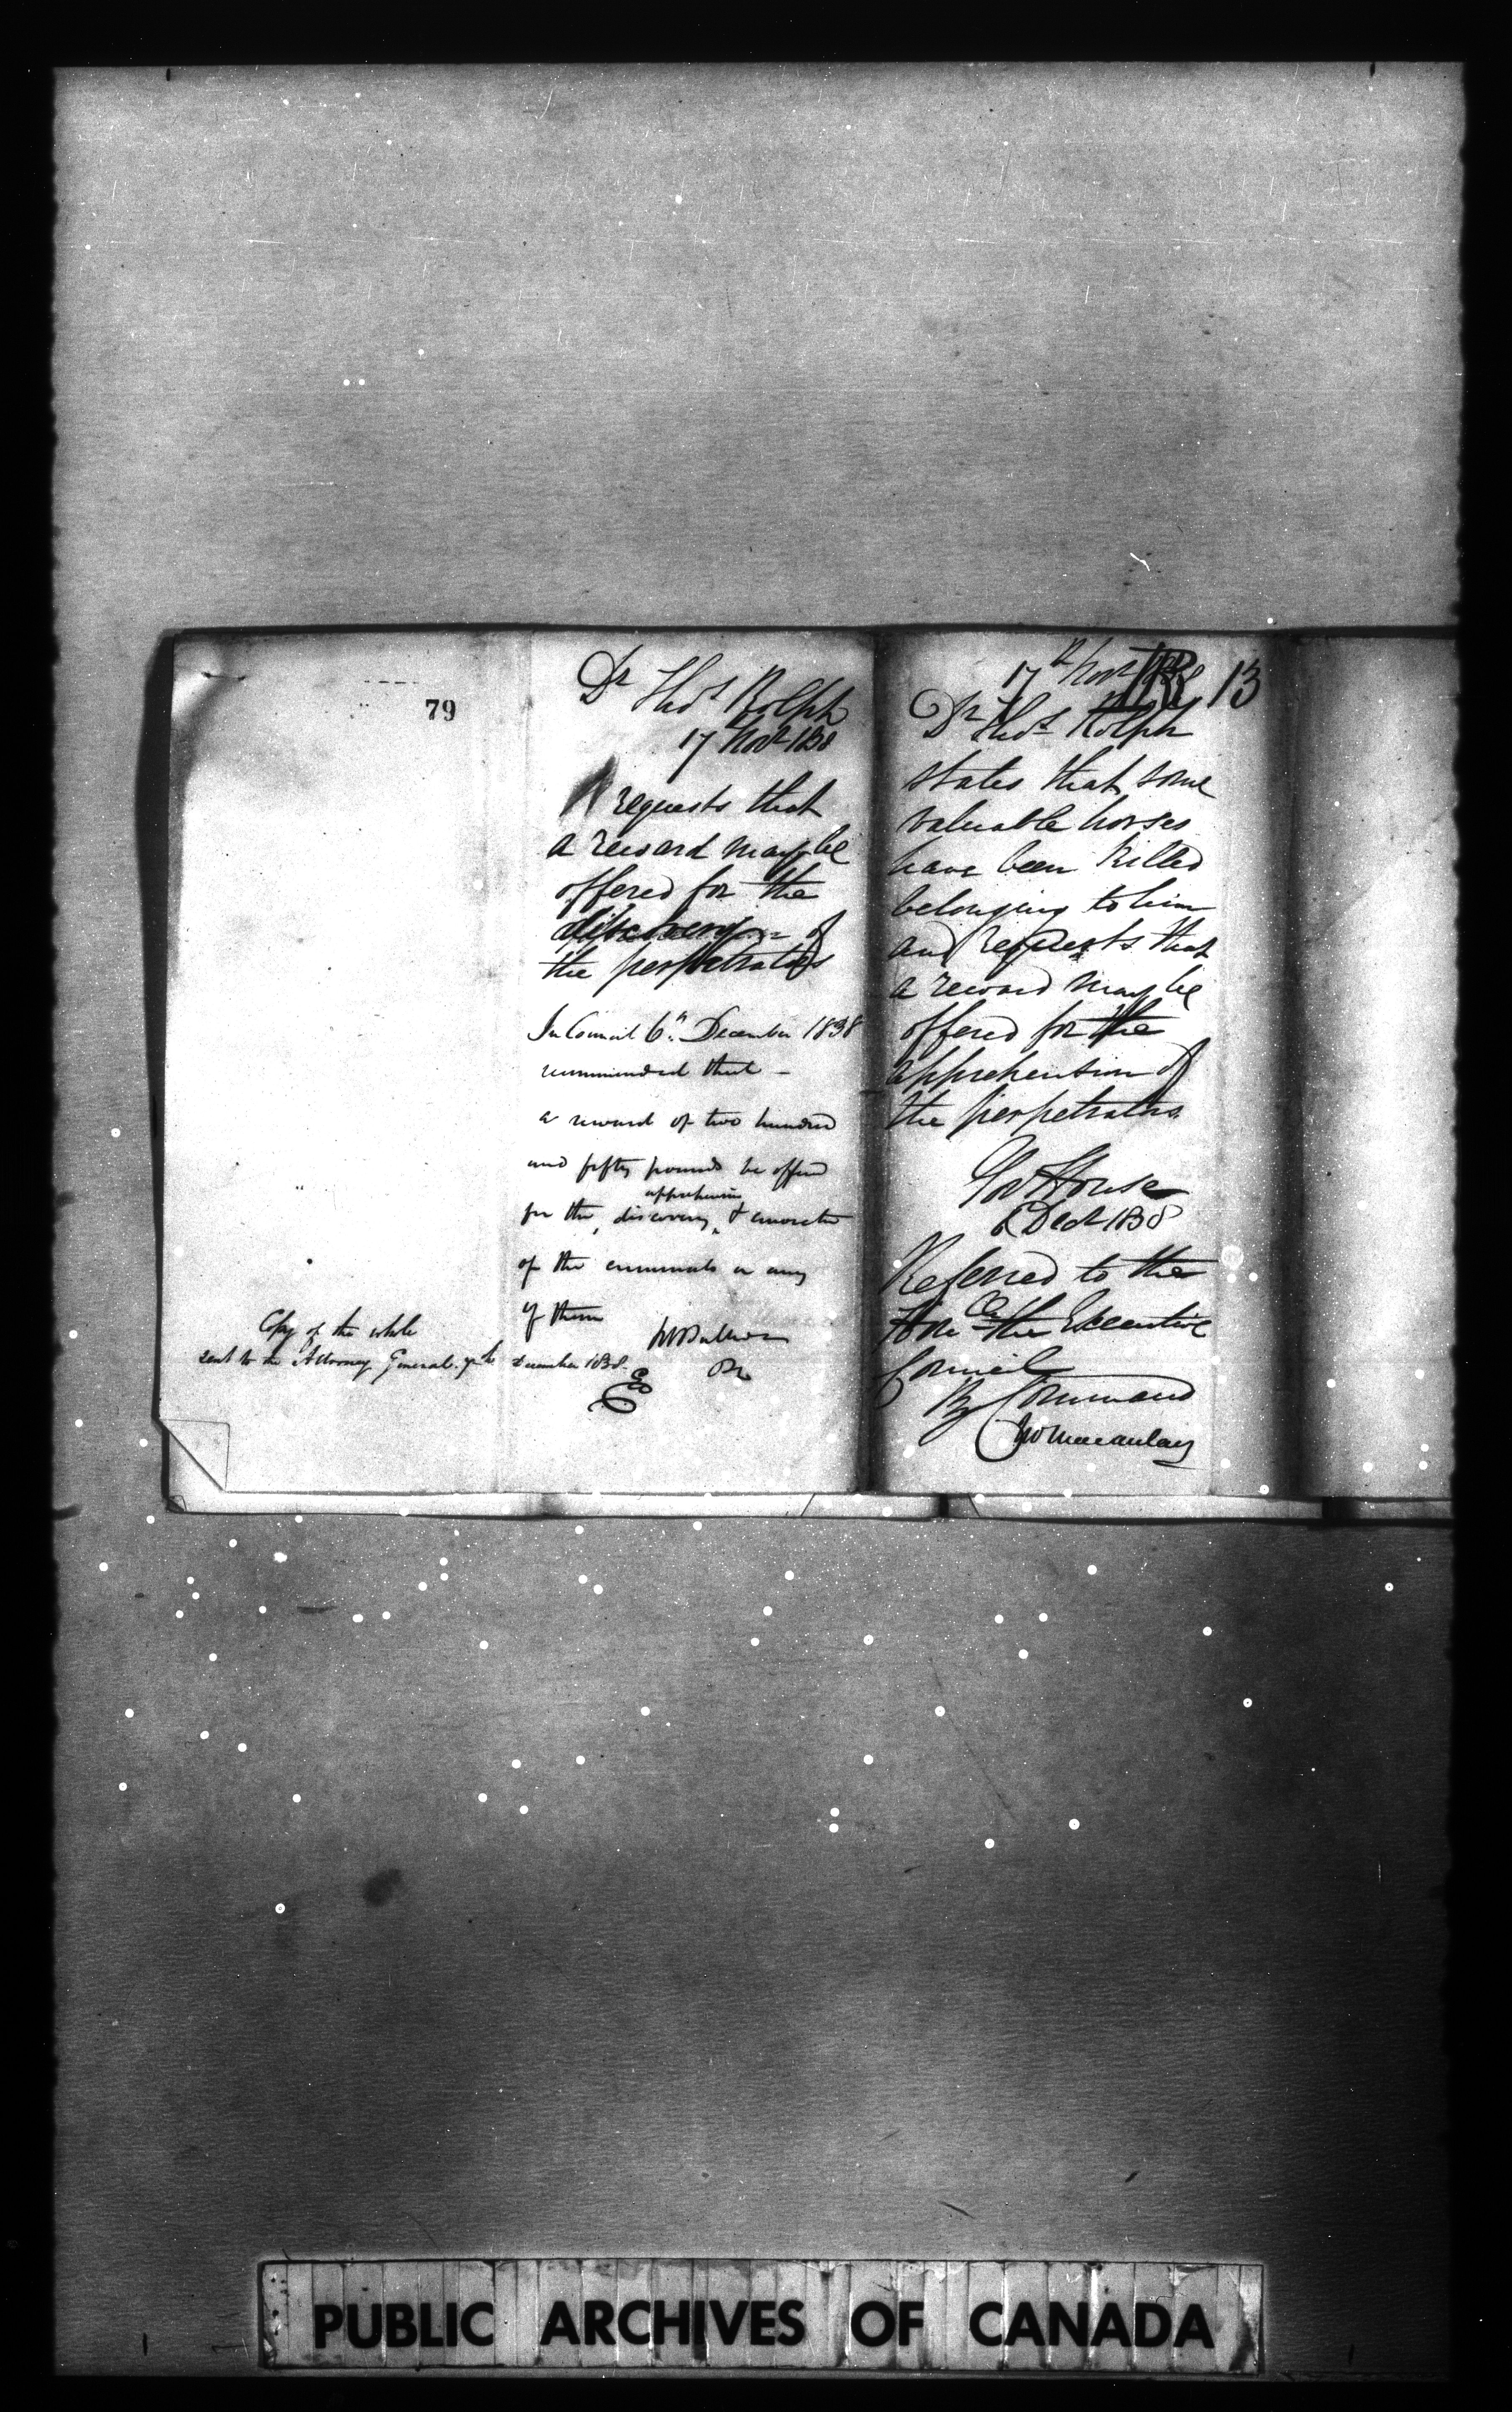 79
Dr Thos Rolph
17 Novr 1838
requests that
a reward may be
offered for the
discovery of
the perpetrators
In Council 6th December 1838
recommended that -
a reward of two hundred
and fifty pounds be offered
apprehension
for the, discovery, & conviction
of the criminals or any
of them
Copy of the whole
sent to the Attorney General. 7th December 1838.
17th Novr 1838
R 13
Dr Thos Rolph
states that some
valuable horses
have been killed
belonging to him
and requests that
a reward may be
offered for the
apprehension of
the perpetrators
Gov House
6 Decr 1838
Referred to the
Honble the Executive
Council
By Command
Jno Macaulay
PUBLIC ARCHIVES OF CANADA